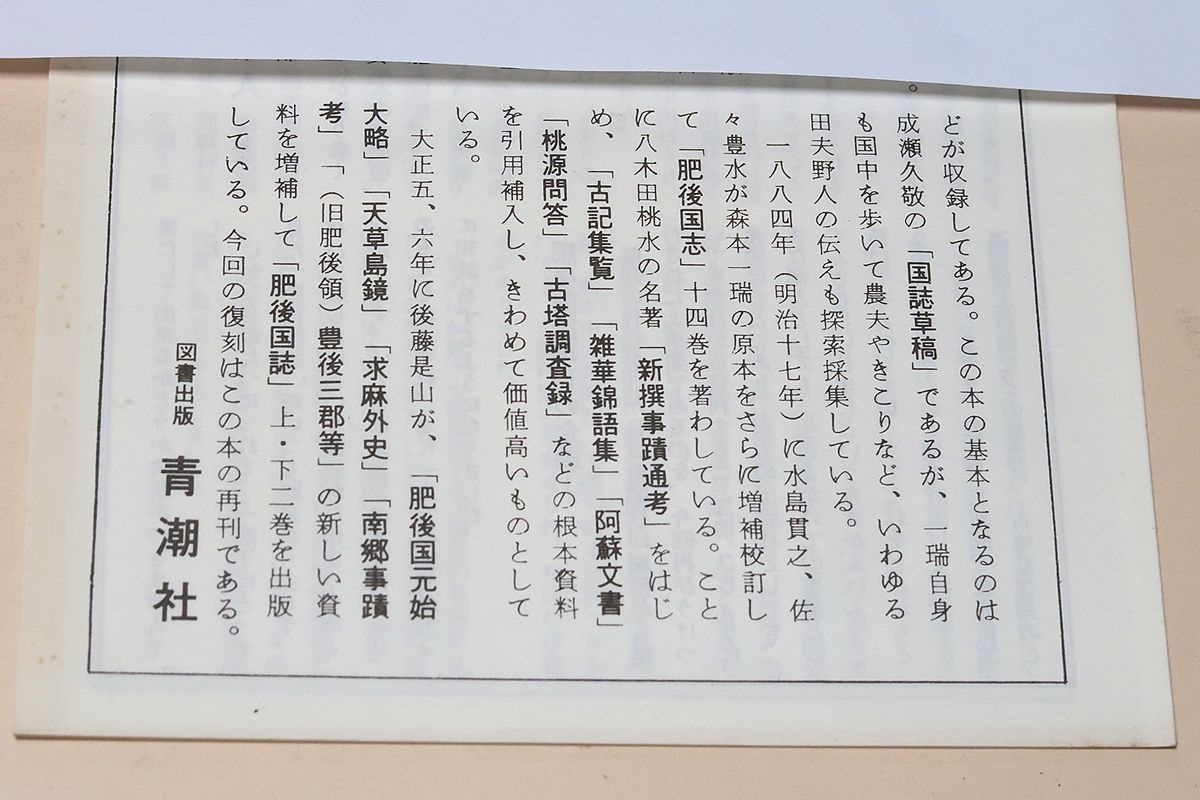 どが収録してある。この本の基本となるのは
。
成瀬久敬の「国誌草稿」であるが、一瑞自身
も国中を歩いて農夫やきこりなど、いわゆる
田夫野人の伝えも探索採集している。
一八八四年（明治十七年）に水島貫之、佐
々豊水が森本一瑞の原本をさらに増補校訂し
て「肥後国志」十四巻を著わしている。こと
に八木田桃水の名著「新撰事蹟通考」をはじ
め、「古記集覧」「雑華錦語集」「阿蘇文書」
「桃源問答」「古塔調査録」などの根本資料
を引用補入し、きわめて価値高いものとして
いる。
大正五、六年に後藤是山が、「肥後国元始
大略」「天草島鏡」「求麻外史」「南郷事蹟
考」「（旧肥後領）豊後三郡等」の新しい資
料を増補して「肥後国誌」上・下二巻を出版
している。今回の復刻はこの本の再刊である。
図書出版 青潮社